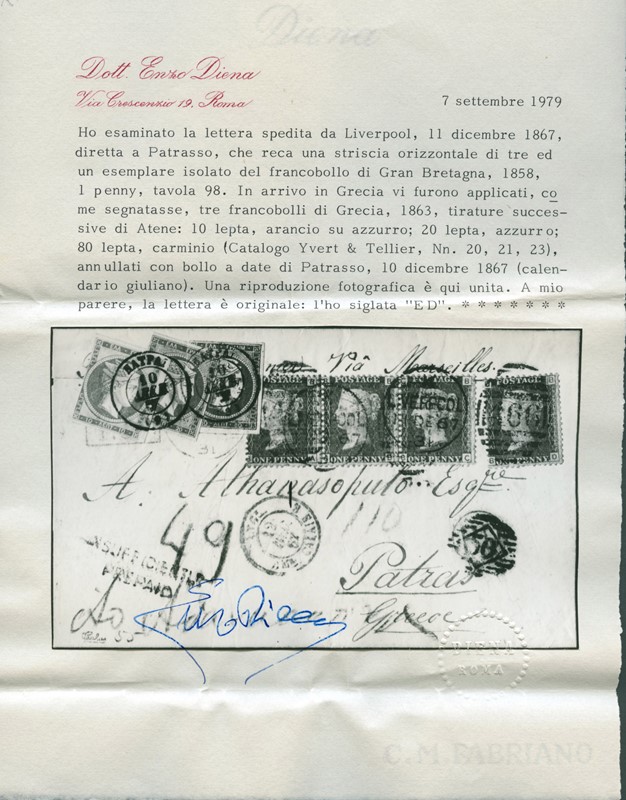 Diena
Dott. Enzo Diena
Via Crescenzio 19, Roma
7 settembre 1979
Ho esaminato la lettera spedita da Liverpool, 11 dicembre 1867,
diretta a Patrasso, che reca una striscia orizzontale di tre ed
un esemplare isolato del francobollo di Gran Bretagna, 1858,
1 penny, tavola 98. In arrivo in Grecia vi furono applicati, co
me segnatasse, tre francobolli di Grecia, 1863, tirature succes-
sive di Atene: 10 lepta, arancio su azzurro; 20 lepta, azzurro;
80 lepta, carminio (Catalogo Yvert & Tellier, Nn. 20, 21, 23),
annullati con bollo a date di Patrasso, 10 dicembre 1867 (calen-
dario giuliano). Una riproduzione fotografica è qui unita. A mio
parere, la lettera è originale: l'ho siglata "ED". * * * * * * *
Viâ Marseilles.
ΠΑΤΡΑΙ
10
POSTAGE POSTAGE POSTAGE POSTAGE
466
ONE PENNY ONE PENNY ONE PENNY ONE PENNY
A. Athanasopulo Esqre
49
110
INSUFFICIENTLY
PREPAID
Patras
Greece
Enzo Diena
DIENA
ROMA
C.M. FABRIANO